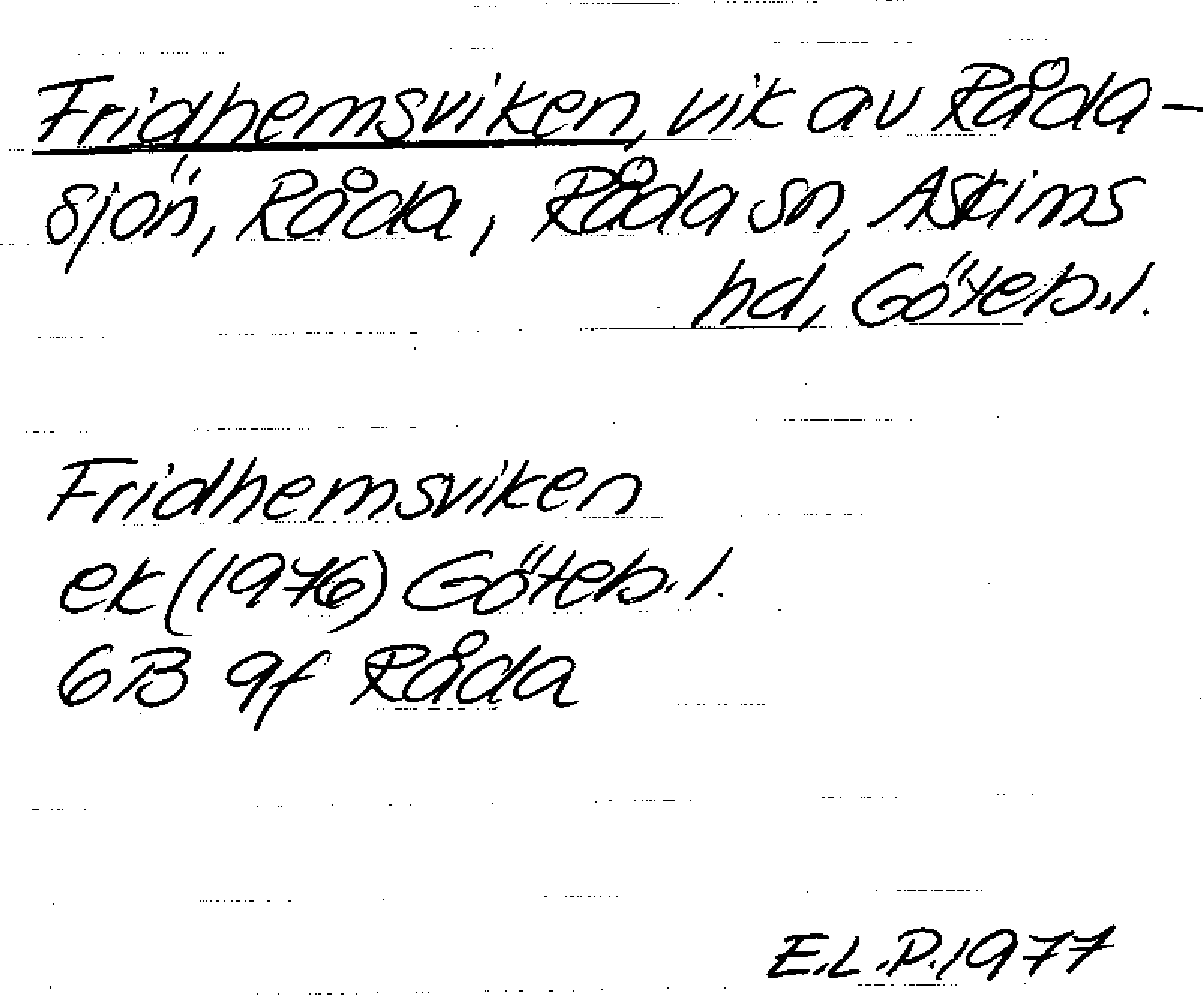 Fridhemsviken, vik av Råda-
sjön, Råda, Råda sn, Askims
hd, Göteb.l.
Fridhemsviken
ek (1976) Göteb.l.
6B 9f Råda
E.L.P. 1977